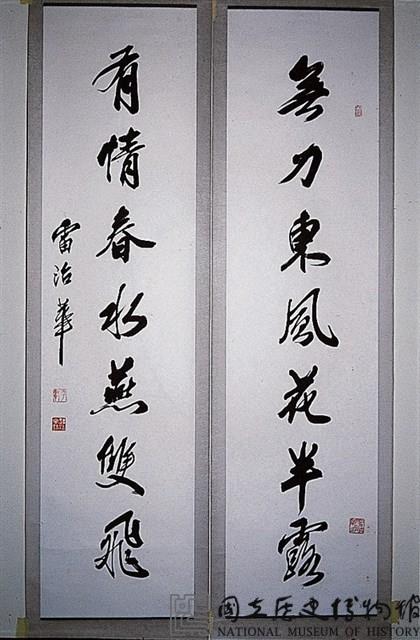 無力東風花半露
有情春水燕雙飛
雷治華
國立歷史博物館
NATIONAL MUSEUM OF HISTORY